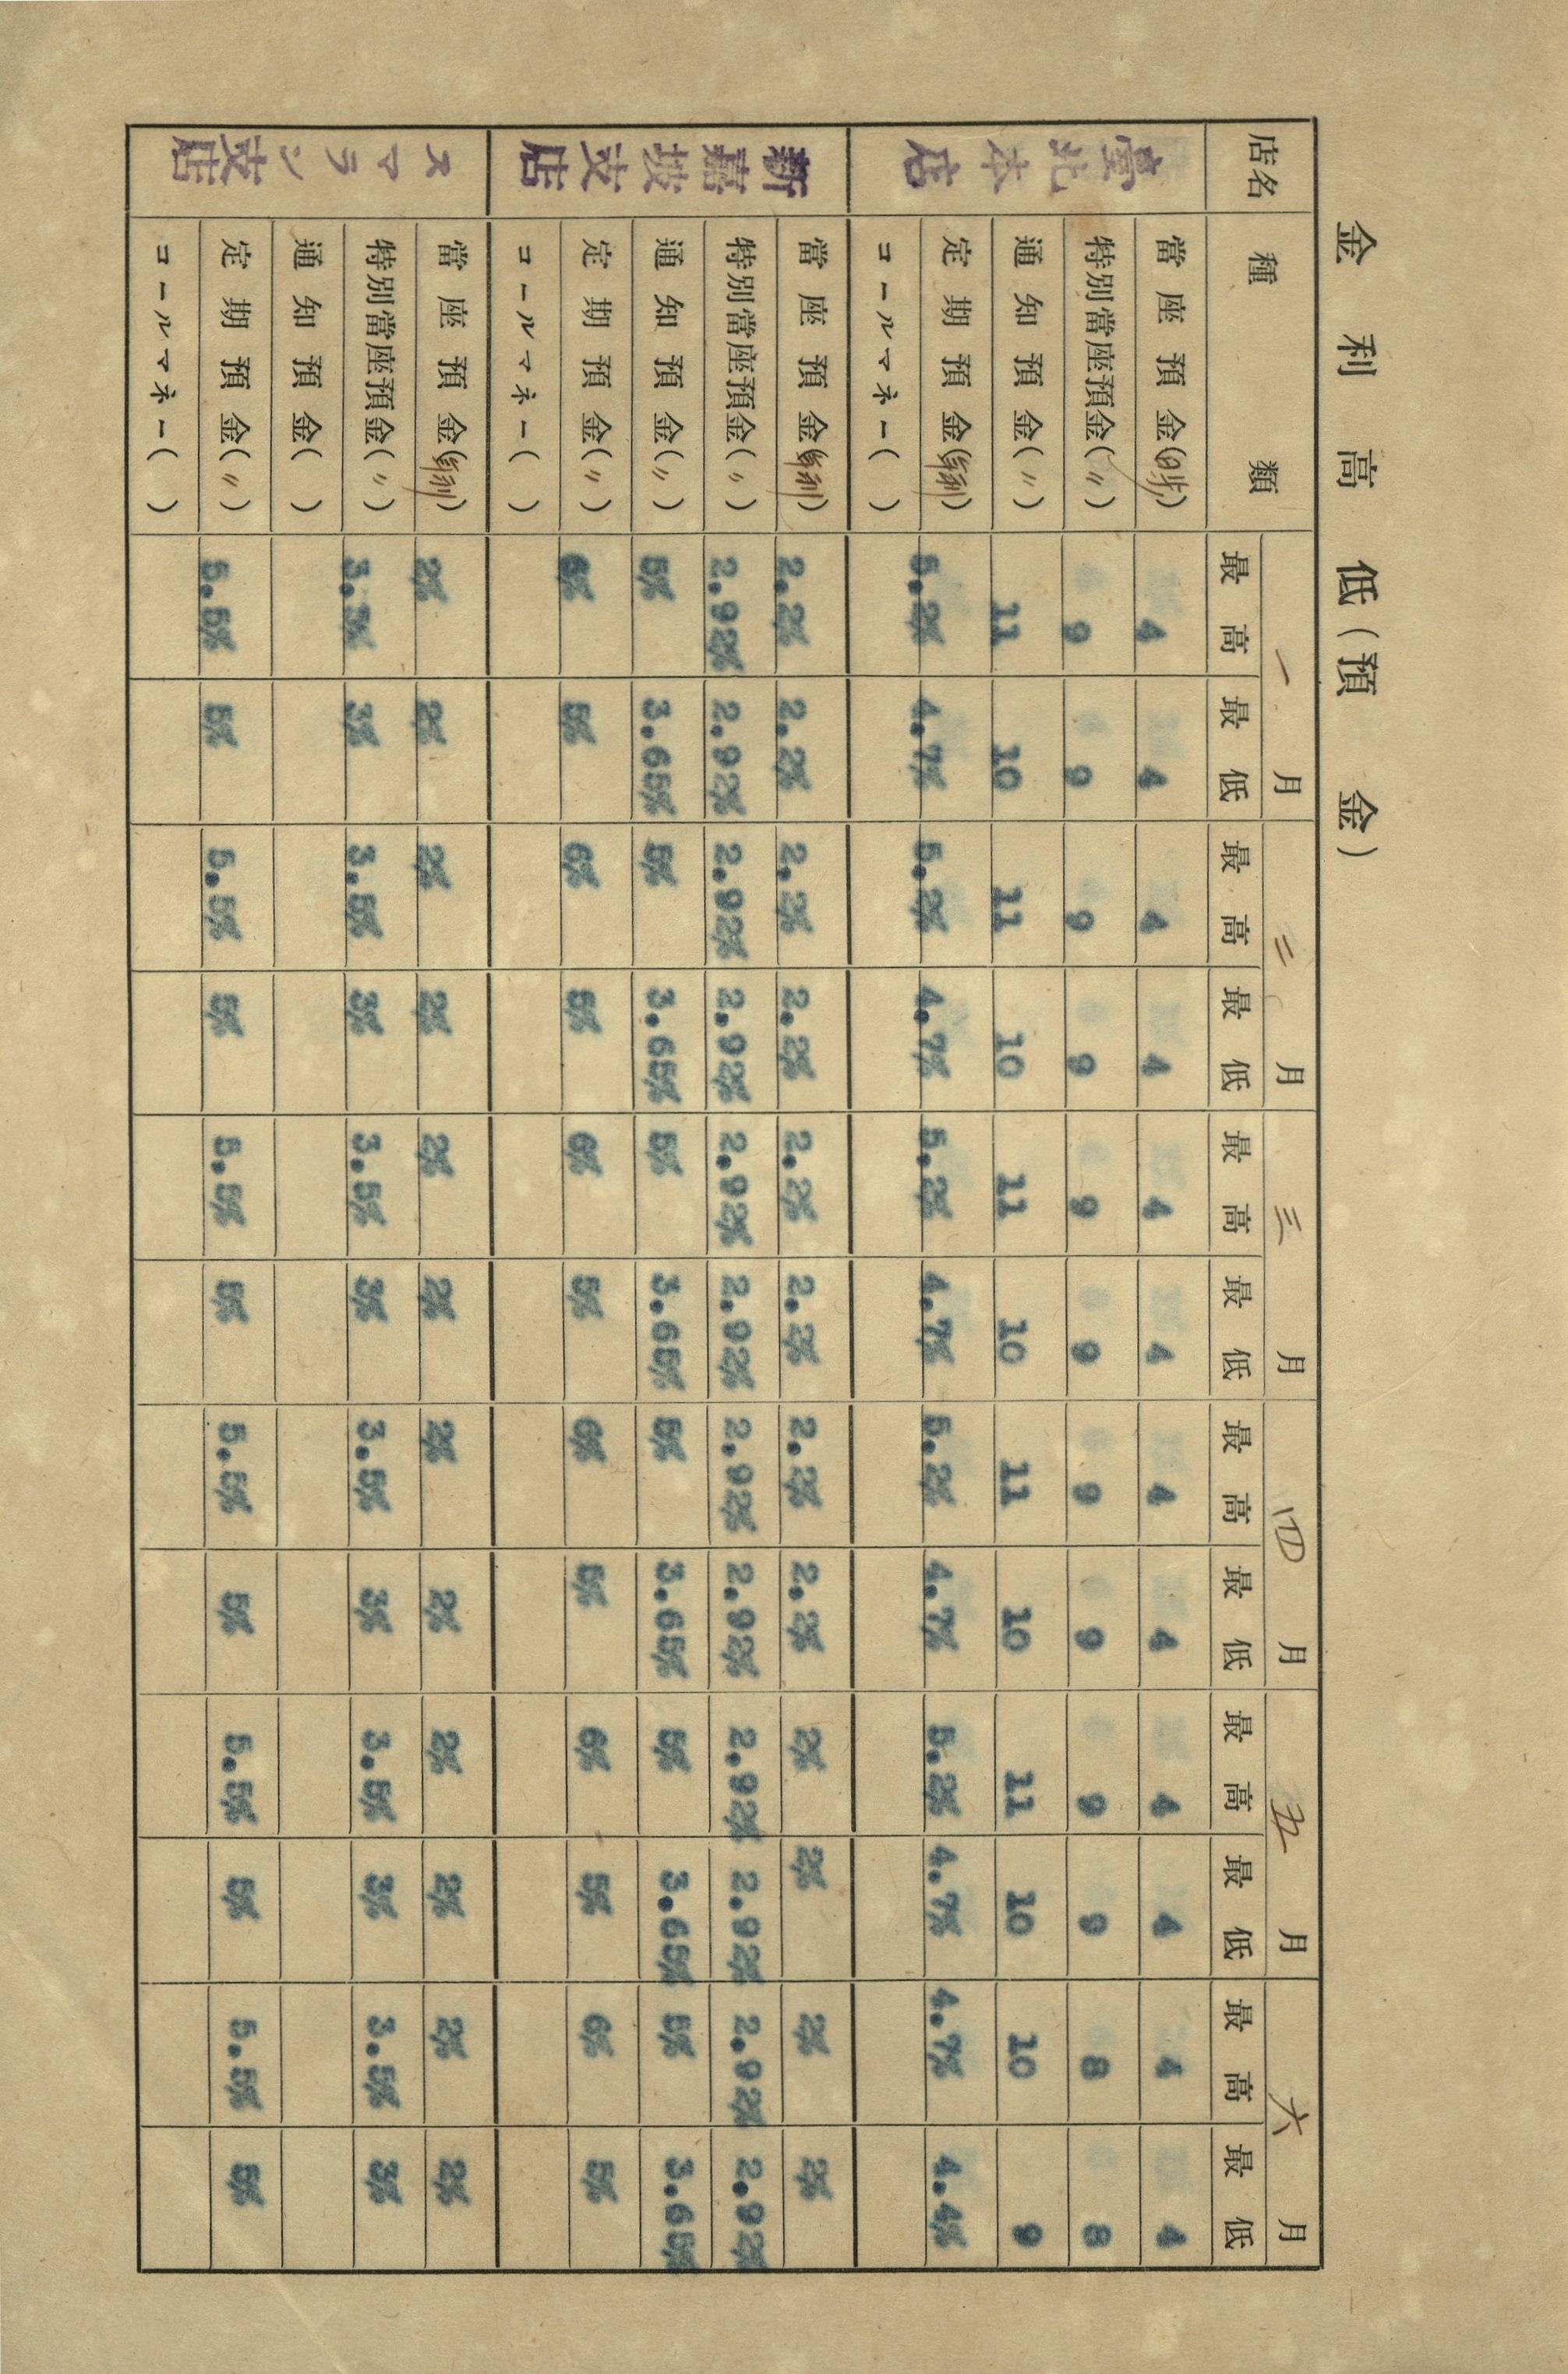 金利高低(預金)
店名 種類 一月 二月 三月 四月 五月 六月
最高 最低 最高 最低 最高 最低 最高 最低 最高 最低 最高 最低
臺北本店
當座預金(日歩) 4 4 4 4 4 4 4 4 4 4 4 4
特別當座預金(〃) 9 9 9 9 9 9 9 9 9 9 8 8
通知預金(〃) 11 10 11 10 11 10 11 10 11 10 10 9
定期預金(年利) 5.2% 4.7% 5.2% 4.7% 5.2% 4.7% 5.2% 4.7% 5.2% 4.7% 4.7% 4.4%
コールマネー( )
新嘉坡支店
當座預金(年利) 2.2% 2.2% 2.2% 2.2% 2.2% 2.2% 2.2% 2.2% 2% 2% 2% 2%
特別當座預金(〃) 2.92% 2.92% 2.92% 2.92% 2.92% 2.92% 2.92% 2.92% 2.92% 2.92% 2.92% 2.92%
通知預金(〃) 5% 3.65% 5% 3.65% 5% 3.65% 5% 3.65% 5% 3.65% 5% 3.65%
定期預金(〃) 6% 5% 6% 5% 6% 5% 6% 5% 6% 5% 6% 5%
コールマネー( )
スマラン支店
當座預金(年利) 2% 2% 2% 2% 2% 2% 2% 2% 2% 2% 2% 2%
特別當座預金(〃) 3% 3.5% 3% 3.5% 3% 3.5% 3% 3.5% 3% 3.5% 3%
通知預金( )
定期預金(〃) 5.5% 5% 5.5% 5% 5.5% 5% 5.5% 5% 5.5% 5% 5.5% 5%
コールマネー( )